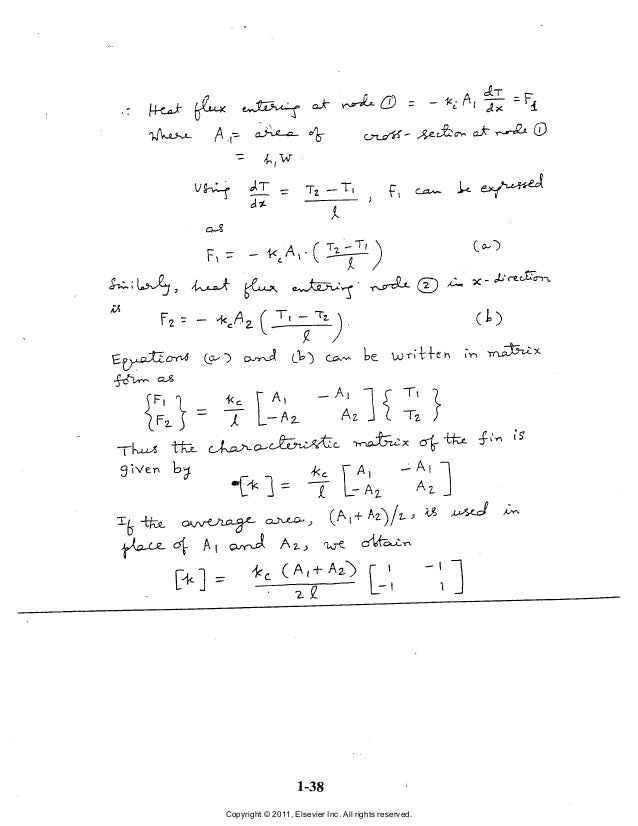 ∴ Heat flux entering at node ① = - k_c A_1 dT/dx = F_1
Where A_1 = area of cross-section at node ①
= h_1 W
Using dT/dx = (T_2 - T_1)/l , F_1 can be expressed
as
F_1 = - k_c A_1 · ( (T_2 - T_1)/l ) (a)
Similarly, heat flux entering node ② in x-direction
is
F_2 = - k_c A_2 ( (T_1 - T_2)/l ). (b)
Equations (a) and (b) can be written in matrix
form as
{F_1 F_2} = k_c/l [A_1 -A_1; -A_2 A_2] {T_1 T_2}
Thus the characteristic matrix of the fin is
given by
[k] = k_c/l [A_1 -A_1; -A_2 A_2]
If the average area, (A_1 + A_2)/2, is used in
place of A_1 and A_2, we obtain
[k] = k_c (A_1 + A_2)/2l [1 -1; -1 1]
1-38
Copyright © 2011, Elsevier Inc. All rights reserved.